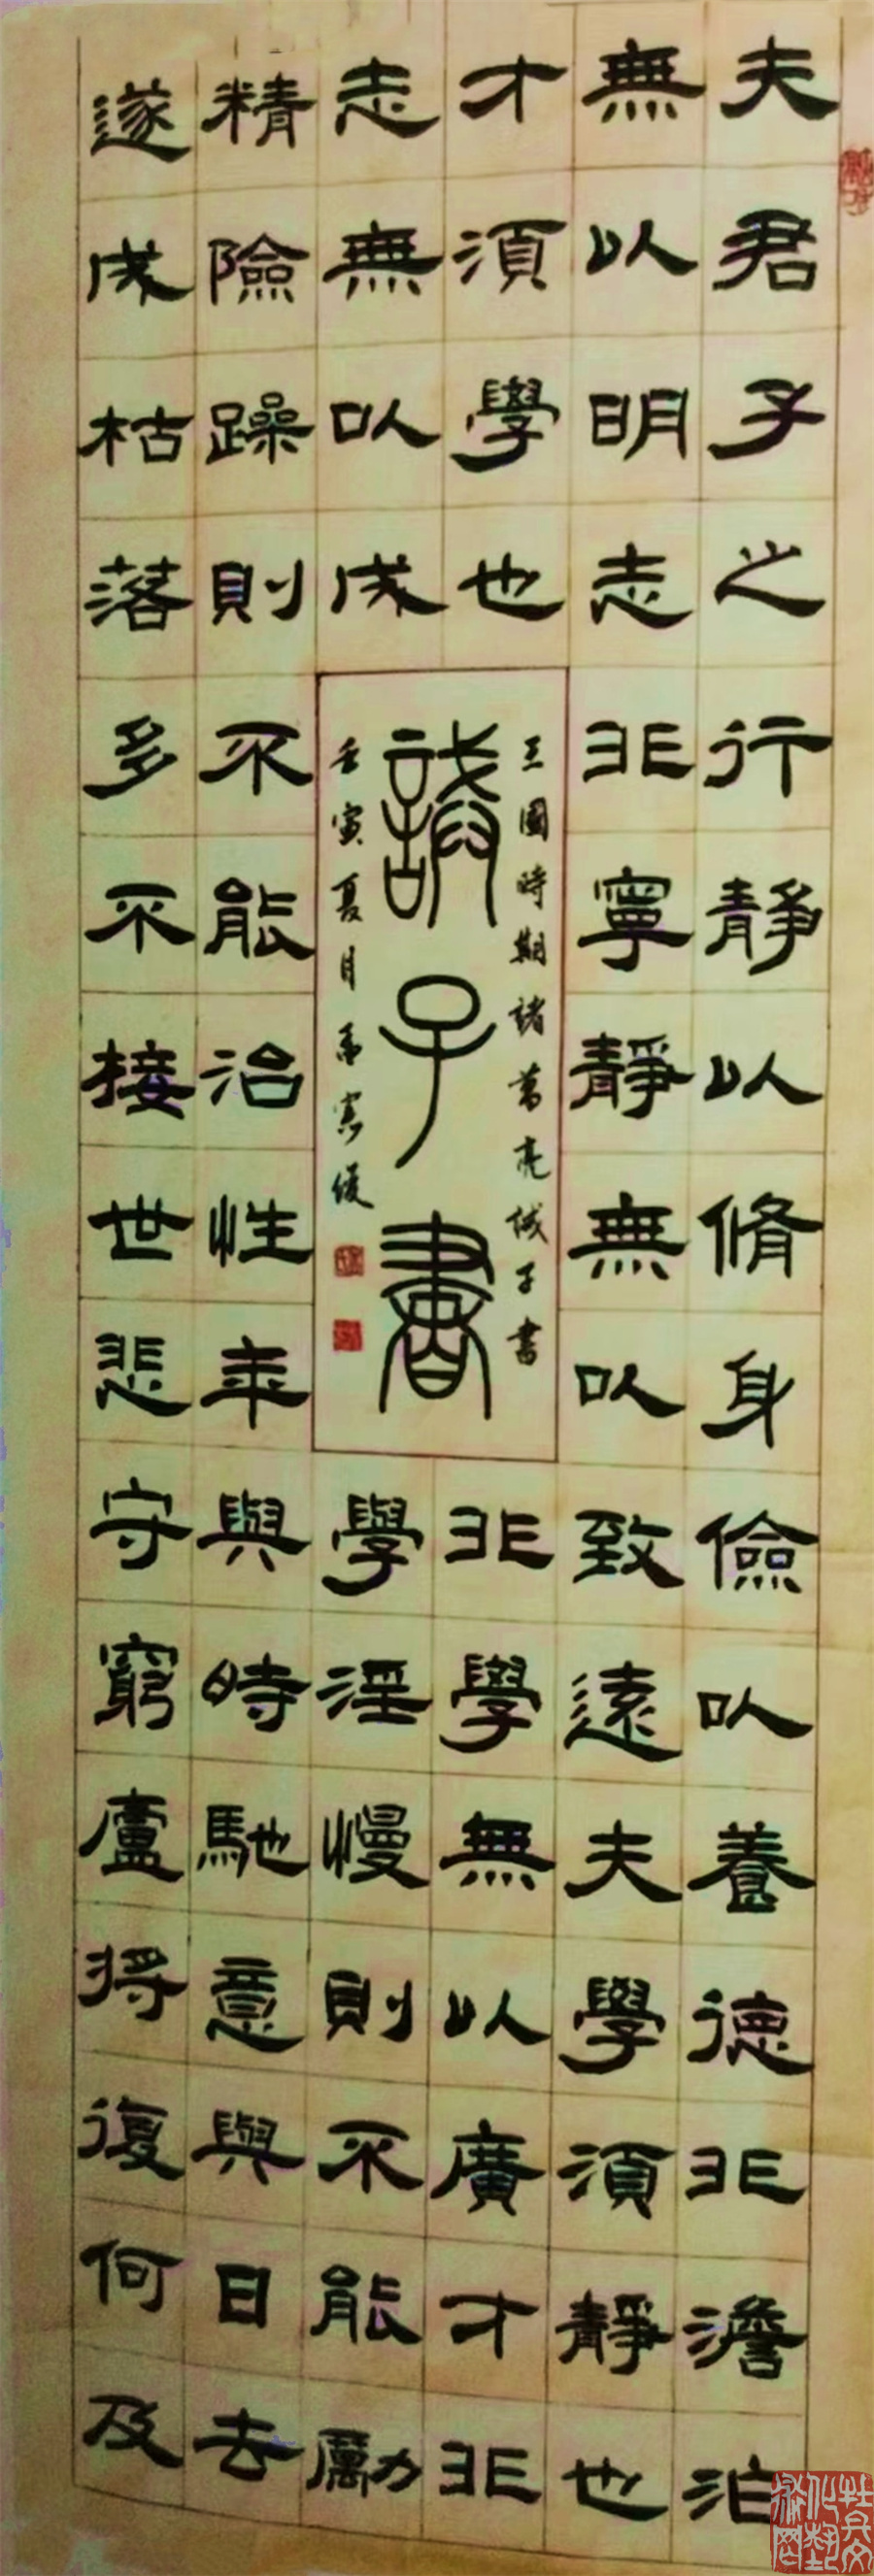 夫君子之行靜以脩身儉以養德非澹泊
無以明志非寧靜無以致遠夫學須靜也
才須學也非學無以廣才非
志無以成學淫慢則不能勵
精險躁則不能治性年與時馳意與日去
遂成枯落多不接世悲守窮廬將復何及
三國時期諸葛亮誡子書
誡子書
壬寅夏月